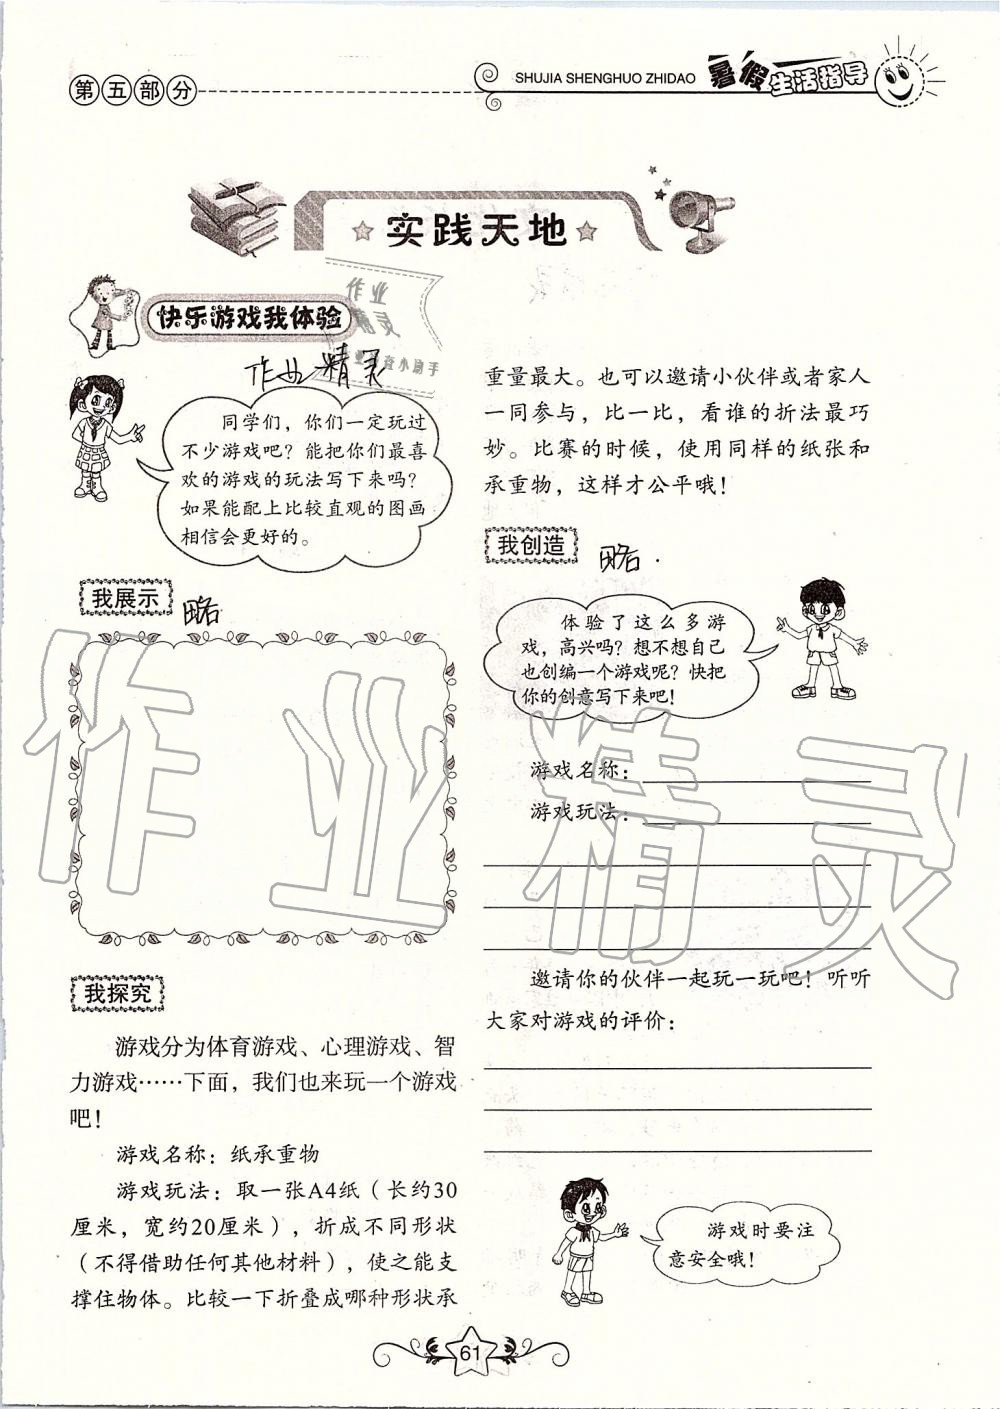 第五部分
SHUJIA SHENGHUO ZHIDAO
暑假生活指导
实践天地
快乐游戏我体验
作业
精灵
作业精灵
同学们，你们一定玩过
不少游戏吧？能把你们最喜
欢的游戏的玩法写下来吗？
如果能配上比较直观的图画
相信会更好的。
我展示
略
我探究
游戏分为体育游戏、心理游戏、智
力游戏……下面，我们也来玩一个游戏
吧！
游戏名称：纸承重物
游戏玩法：取一张A4纸（长约30
厘米，宽约20厘米），折成不同形状
（不得借助任何其他材料），使之能支
撑住物体。比较一下折叠成哪种形状承
重量最大。也可以邀请小伙伴或者家人
一同参与，比一比，看谁的折法最巧
妙。比赛的时候，使用同样的纸张和
承重物，这样才公平哦！
我创造
略.
体验了这么多游
戏，高兴吗？想不想自己
也创编一个游戏呢？快把
你的创意写下来吧！
游戏名称：
游戏玩法：
邀请你的伙伴一起玩一玩吧！听听
大家对游戏的评价：
游戏时要注
意安全哦！
作业精灵
61